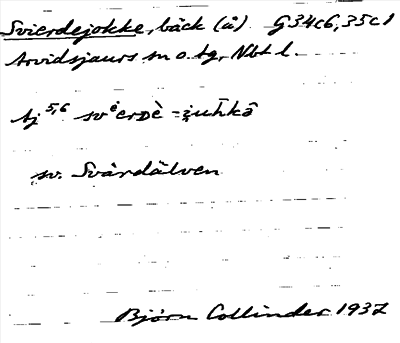 Svierdejokke, bäck (å) G34c6, 35c1
Arvidsjaurs sn o. tg, Nbt l.
tj 5,6 svėerᴅè-juh̄kȧ̂
sv. Svärdälven
Björn Collinder 1937